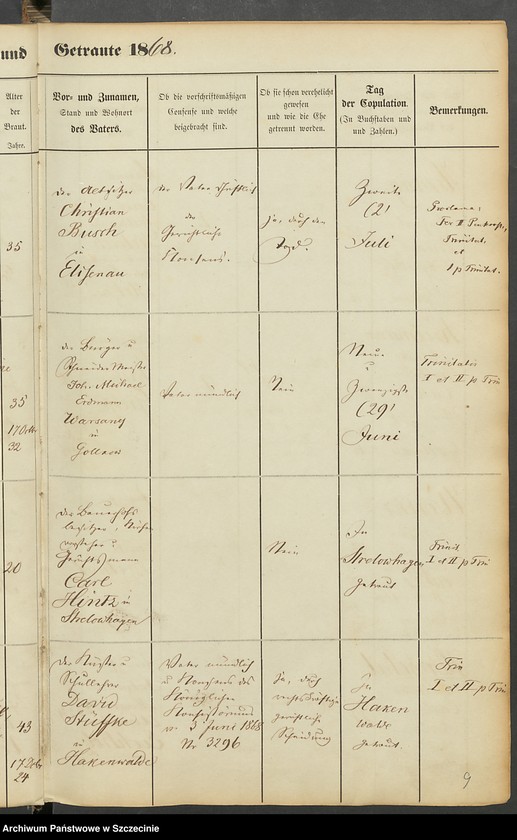 und
Getraute 1868.
Alter
der
Braut.
Jahre.
Vor- und Zunamen,
Stand und Wohnort
des Vaters.
Ob die vorschriftsmäßigen
Consense und welche
beigebracht sind.
Ob sie schon verehelicht
gewesen
und wie die Ehe
getrennt worden.
Tag
der Copulation.
(In Buchstaben und
und Zahlen.)
Bemerkungen.
35
der Altsitzer
Christian
Busch
in
Elisenau
der Vater schriftlich
der
Gerichtliche
ja, durch den
Tod.
Zweite
(2)
Juli
Trinitat.
et
I p Trinitat.
35
17
32
der Bürger u
Schneider Meister
Joh. Michael
Erdmann
Warsany
in
Gollnow
Vater mündlich
Nein
Neun
u
Zwanzigste
(29)
Juni
Trinitatis
I et II p Trin
20
der Bauerhofs
besitzer, Kirchen
vorsteher u
Gerichtsmann
Carl
Hintz in
Strelowhagen
Nein
In
Strelowhagen
getraut
Trinit
I et II p Trin
43
17
24
Der Küster u
Schullehrer
David
Stüffke
in
Hakenwalde
Vater mündlich
u Konsens des
Königlichen
Konsistoriums
v. 3 Juni 1868
Nr 3296
Ja, durch
rechtskräftige
gerichtliche
Scheidung
In
Haken
walde
getraut.
Trin
I et II p Trin
9
Archiwum Państwowe w Szczecinie